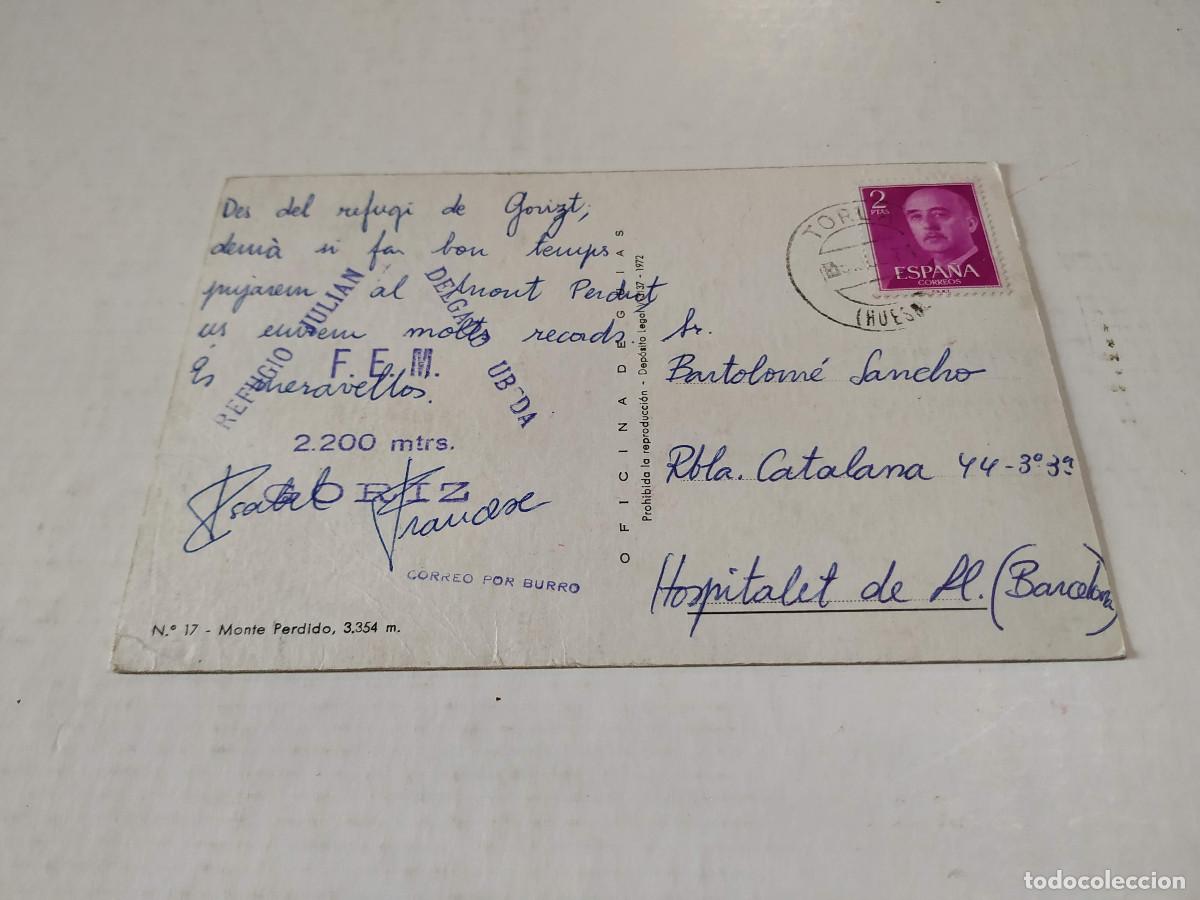 Des del refugi de Gorizt;
demà si fa bon temps
pujarem al Mont Perdut
us enviem molts records.
És meravellos.
REFUGIO JULIAN DELGADO UBEDA
F. E. M.
2.200 mtrs.
GORIZ
Isabel Francesc
CORREO POR BURRO
N.º 17 - Monte Perdido, 3.354 m.
OFICINA DE GUIAS
Prohibida la reproducción - Depósito Legal 137 - 1972
TORLA
(HUESCA
2
PTAS
ESPAÑA
CORREOS
Sr.
Bartolomé Sancho
Rbla. Catalana 44-3º3ª
Hospitalet de Ll. (Barcelona)
todocoleccion